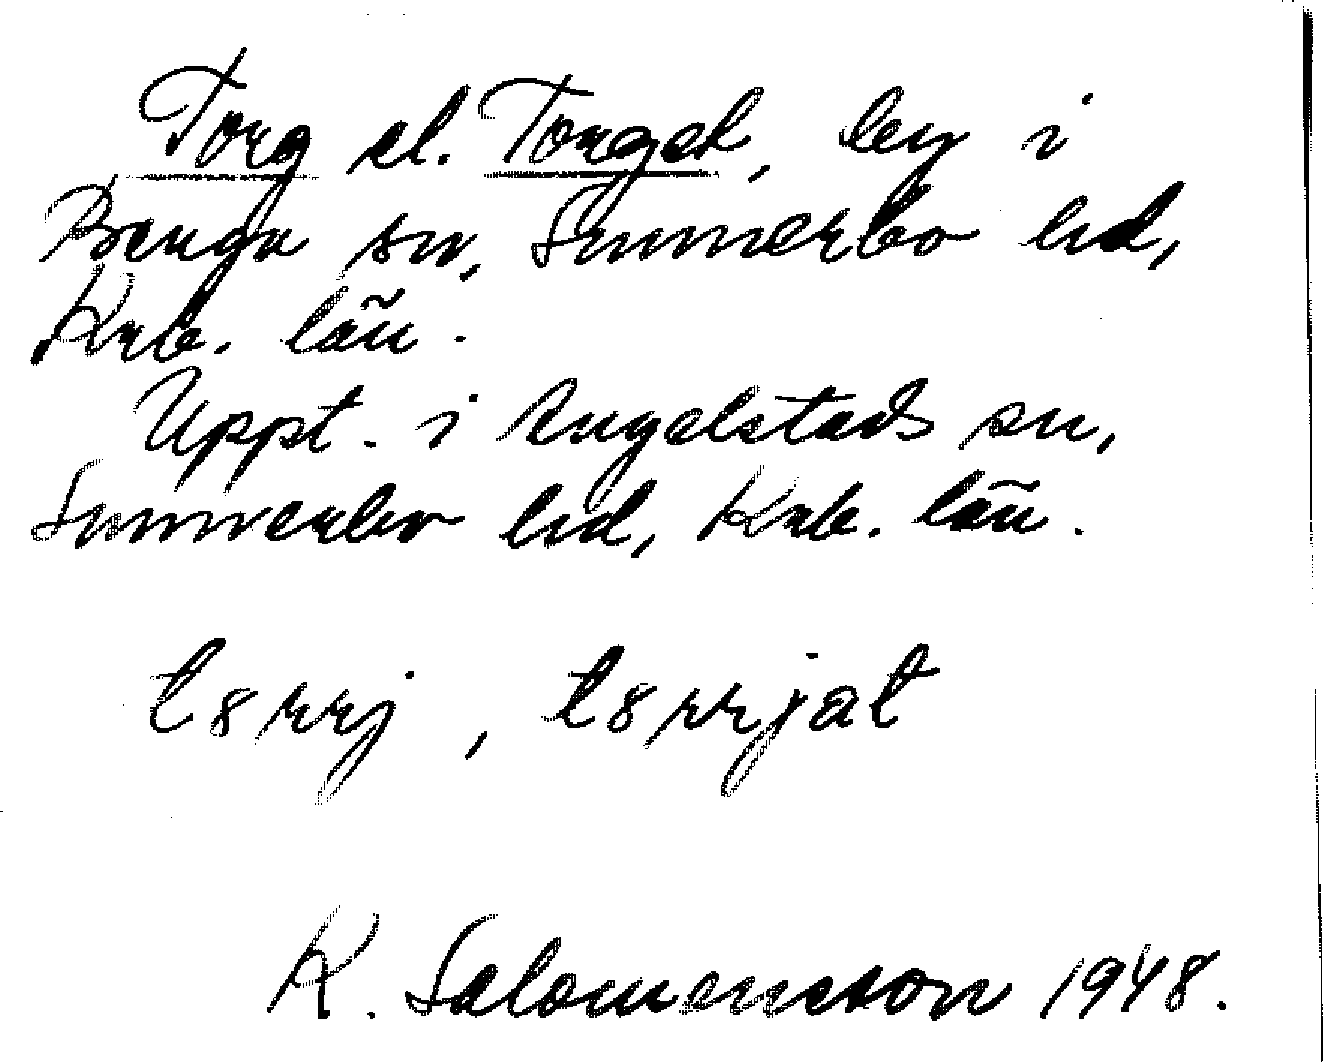 Torg el. Torget, by i
Berga sn, Sunnerbo hd,
Krb. län.
Uppt. i Angelstads sn,
Sunnerbo hd, Krb. län.
t8rrj, t8rrjat
K. Salomonsson 1948.